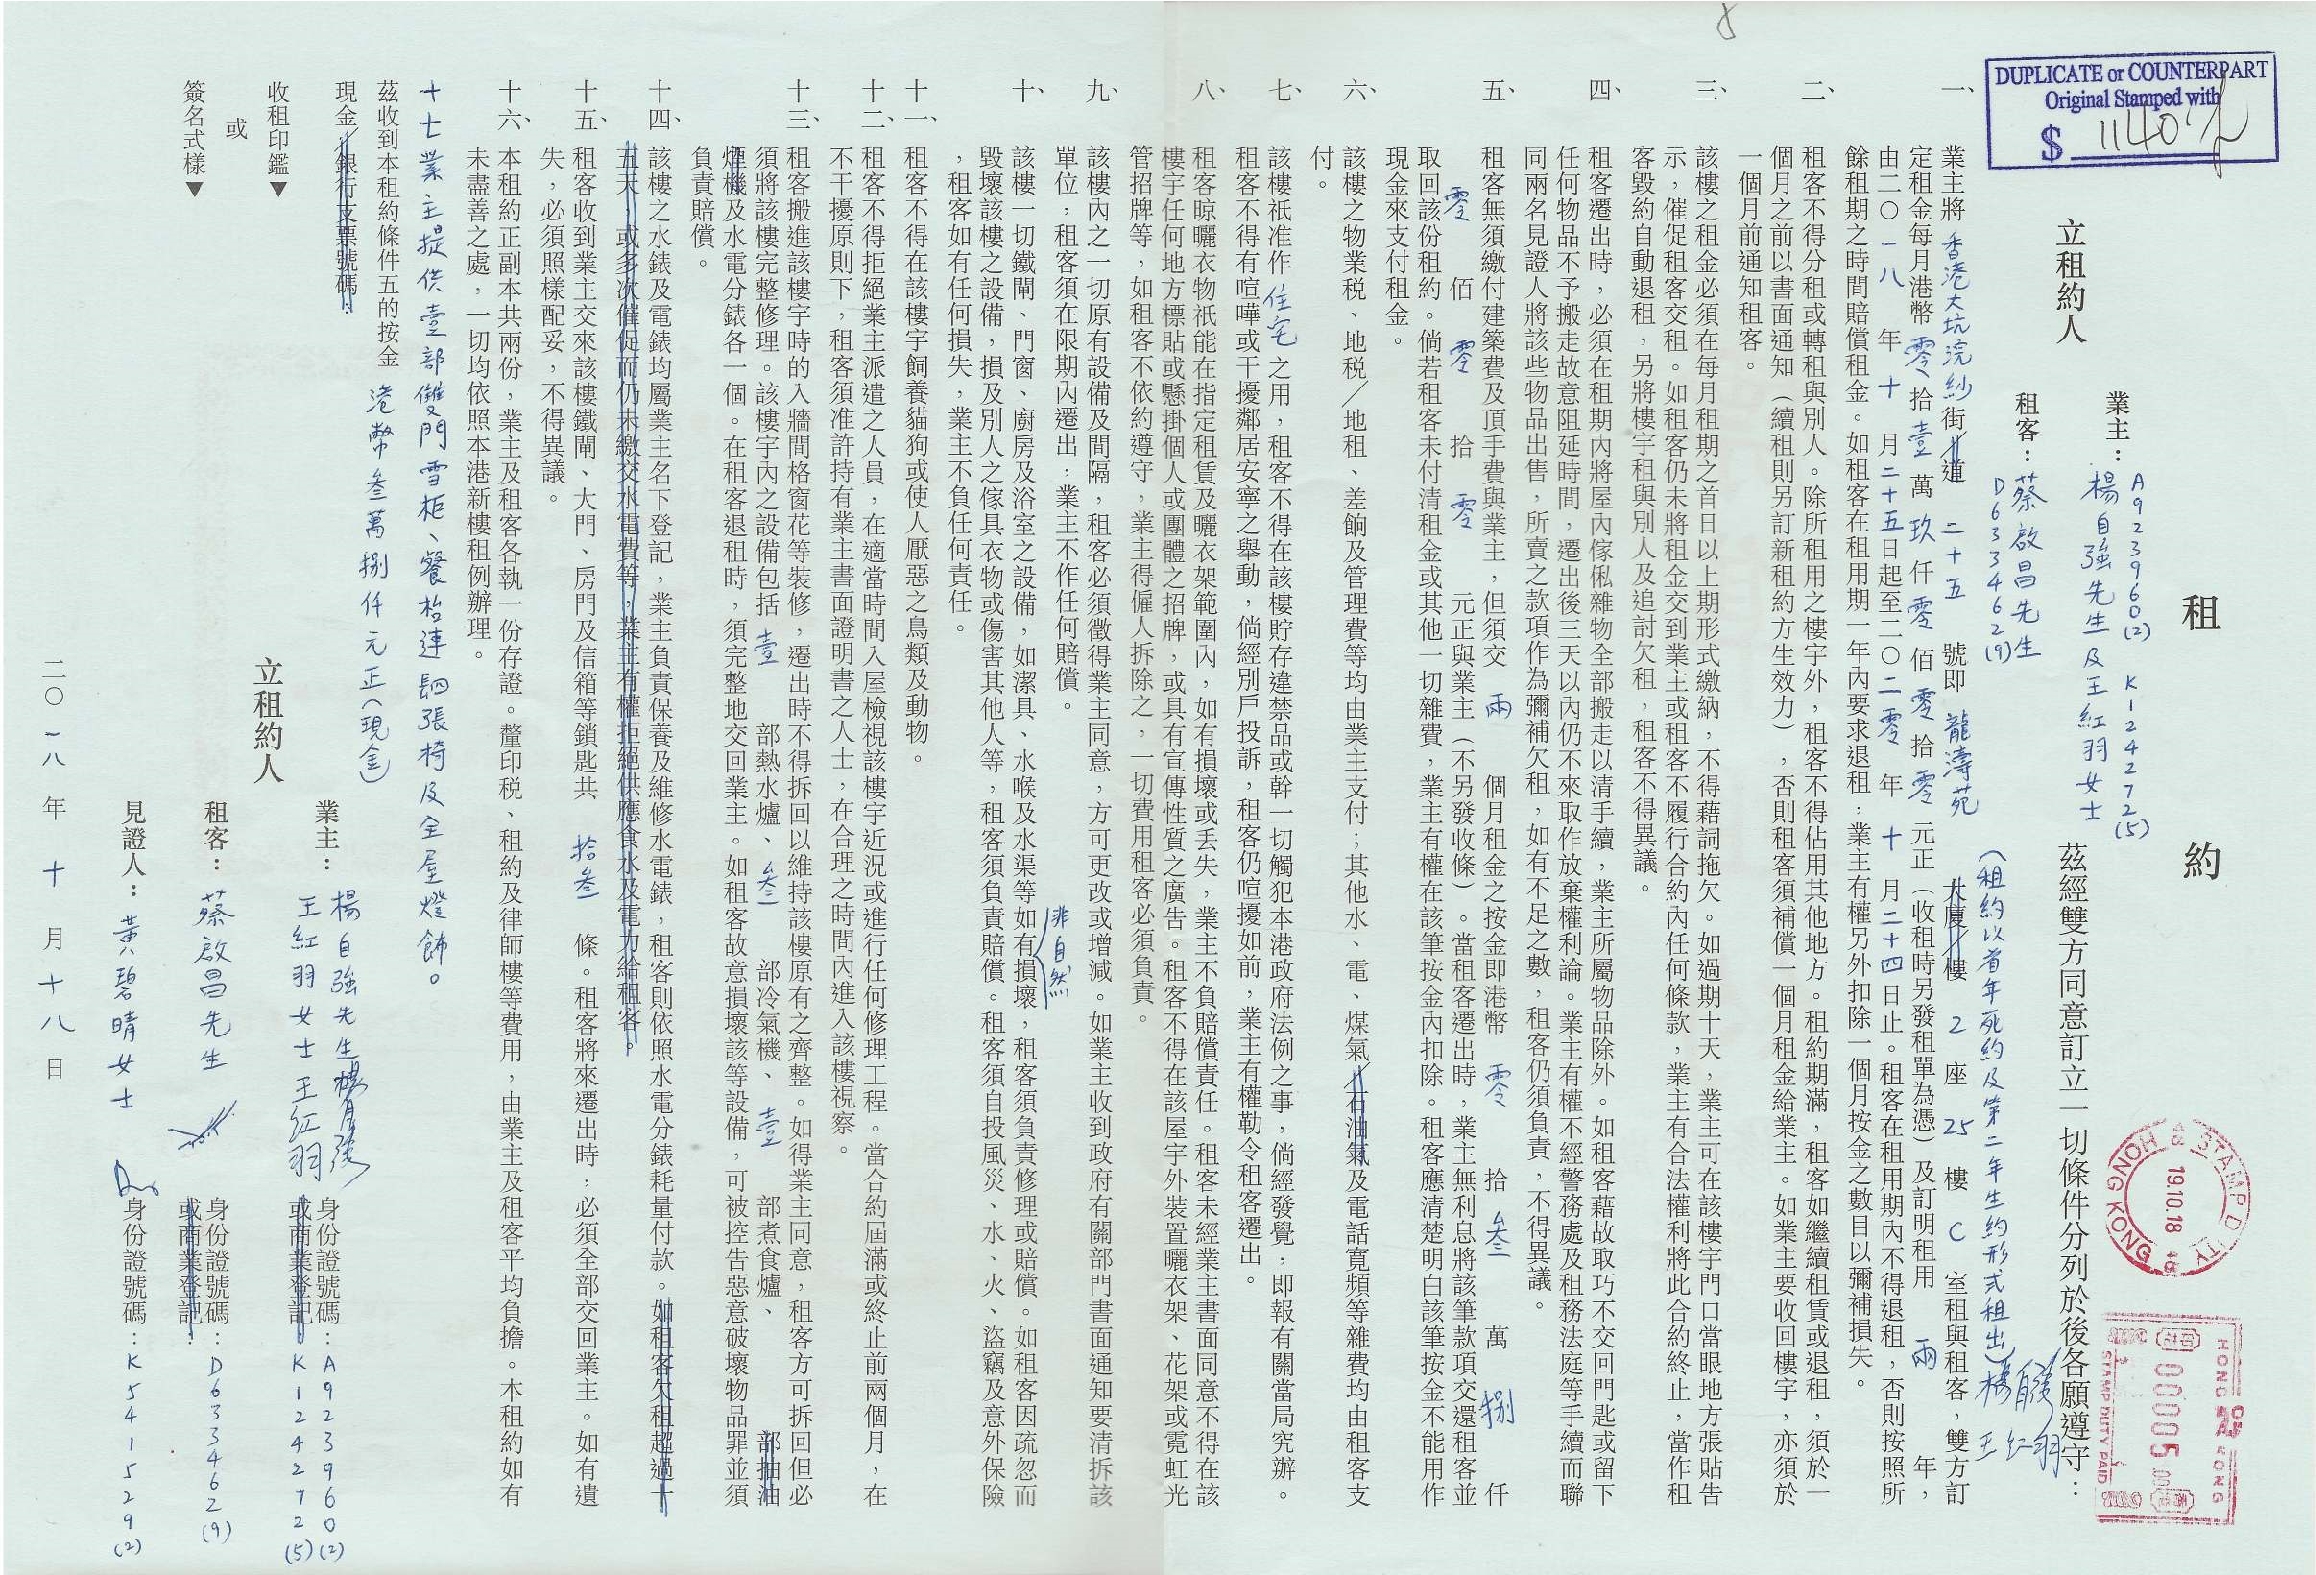 租約
A923960(2) K124272(5)
業主：楊自強先生及王紅羽女士
立租約人
茲經雙方同意訂立一切條件分列於後各願遵守：
租客：蔡啟昌先生
D633462(9)
（租約以首年死約及第二年生約形式租出）
王紅羽
DUPLICATE or COUNTERPART
Original Stamped with
$ 1140
STAMP DUTY
HONG KONG
19.10.18
HONG KONG
00005
STAMP DUTY PAID
一、業主將香港大坑浣紗街/道二十五號即龍濤苑大廈/樓2座25樓C室租與租客，雙方訂
定租金每月港幣零拾壹萬玖仟零佰零拾零元正（收租時另發租單為憑）及訂明租用兩年，
由二〇一八年十月二十五日起至二〇二零年十月二十四日止。租客在租用期內不得退租，否則按照所
餘租期之時間賠償租金。如租客在租用期一年內要求退租；業主有權另外扣除一個月按金之數目以彌補損失。
二、租客不得分租或轉租與別人。除所租用之樓宇外，租客不得佔用其他地方。租約期滿，租客如繼續租賃或退租，須於一
個月之前以書面通知（續租則另訂新租約方生效力），否則租客須補償一個月租金給業主。如業主要收回樓宇，亦須於
一個月前通知租客。
三、該樓之租金必須在每月租期之首日以上期形式繳納，不得藉詞拖欠。如過期十天，業主可在該樓宇門口當眼地方張貼告
示，催促租客交租。如租客仍未將租金交到業主或租客不履行合約內任何條款，業主有合法權利將此合約終止，當作租
客毀約自動退租，另將樓宇租與別人及追討欠租，租客不得異議。
四、租客遷出時，必須在租期內將屋內傢俬雜物全部搬走以清手續，業主所屬物品除外。如租客藉故取巧不交回門匙或留下
任何物品不予搬走故意阻延時間，遷出後三天以內仍不來取作放棄權利論。業主有權不經警務處及租務法庭等手續而聯
同兩名見證人將該些物品出售，所賣之款項作為彌補欠租，如有不足之數，租客仍須負責，不得異議。
五、租客無須繳付建築費及頂手費與業主，但須交兩個月租金之按金即港幣零拾叁萬捌仟
零佰零拾零元正與業主（不另發收條）。當租客遷出時，業主無利息將該筆款項交還租客並
取回該份租約。倘若租客未付清租金或其他一切雜費，業主有權在該筆按金內扣除。租客應清楚明白該筆按金不能用作
現金來支付租金。
六、該樓之物業稅、地稅／地租、差餉及管理費等均由業主支付；其他水、電、煤氣/石油氣及電話寬頻等雜費均由租客支
付。
七、該樓衹准作住宅之用，租客不得在該樓貯存違禁品或幹一切觸犯本港政府法例之事，倘經發覺；即報有關當局究辦。
租客不得有喧嘩或干擾鄰居安寧之舉動，倘經別戶投訴，租客仍喧擾如前，業主有權勒令租客遷出。
八、租客晾曬衣物衹能在指定租賃及曬衣架範圍內，如有損壞或丟失，業主不負賠償責任。租客未經業主書面同意不得在該
樓宇任何地方標貼或懸掛個人或團體之招牌，或具有宣傳性質之廣告。租客不得在該屋宇外裝置曬衣架、花架或霓虹光
管招牌等，如租客不依約遵守，業主得僱人拆除之，一切費用租客必須負責。
九、該樓內之一切原有設備及間隔，租客必須徵得業主同意，方可更改或增減。如業主收到政府有關部門書面通知要清拆該
單位；租客須在限期內遷出；業主不作任何賠償。
非自然
十、該樓一切鐵閘、門窗、廚房及浴室之設備，如潔具、水喉及水渠等如有損壞，租客須負責修理或賠償。如租客因疏忽而
毀壞該樓之設備，損及別人之傢具衣物或傷害其他人等，租客須負責賠償。租客須自投風災、水、火、盜竊及意外保險
，租客如有任何損失，業主不負任何責任。
十一、租客不得在該樓宇飼養貓狗或使人厭惡之鳥類及動物。
十二、租客不得拒絕業主派遣之人員，在適當時間入屋檢視該樓宇近況或進行任何修理工程。當合約屆滿或終止前兩個月，在
不干擾原則下，租客須准許持有業主書面證明書之人士，在合理之時間內進入該樓視察。
十三、租客搬進該樓宇時的入牆間格窗花等裝修，遷出時不得拆回以維持該樓原有之齊整。如得業主同意，租客方可拆回但必
須將該樓完整修理。該樓宇內之設備包括壹部熱水爐、叁部冷氣機、壹部煮食爐、部抽油
煙機及水電分錶各一個。在租客退租時，須完整地交回業主。如租客故意損壞該等設備，可被控告惡意破壞物品罪並須
負責賠償。
十四、該樓之水錶及電錶均屬業主名下登記，業主負責保養及維修水電錶，租客則依照水電分錶耗量付款。如租客欠租超過十
五天，或多次催促而仍未繳交水電費等，業主有權拒絕供應食水及電力給租客。
十五、租客收到業主交來該樓鐵閘、大門、房門及信箱等鎖匙共拾叁條。租客將來遷出時；必須全部交回業主。如有遺
失，必須照樣配妥，不得異議。
十六、本租約正副本共兩份，業主及租客各執一份存證。釐印稅、租約及律師樓等費用，由業主及租客平均負擔。本租約如有
未盡善之處，一切均依照本港新樓租例辦理。
十七業主提供壹部雙門雪柜、餐枱連四張椅及全屋燈飾。
茲收到本租約條件五的按金港幣叁萬捌仟元正（現金）
現金/銀行支票號碼：
收租印鑑▼
或
簽名式樣▼
立租約人
業主：楊自強先生 身份證號碼：A923960(2)
王紅羽女士 王紅羽 或商業登記 K124272(5)
租客：蔡啟昌先生 身份證號碼：D633462(9)
或商業登記：
見證人：黃碧晴女士 身份證號碼：K541529(2)
二〇一八年十月十八日